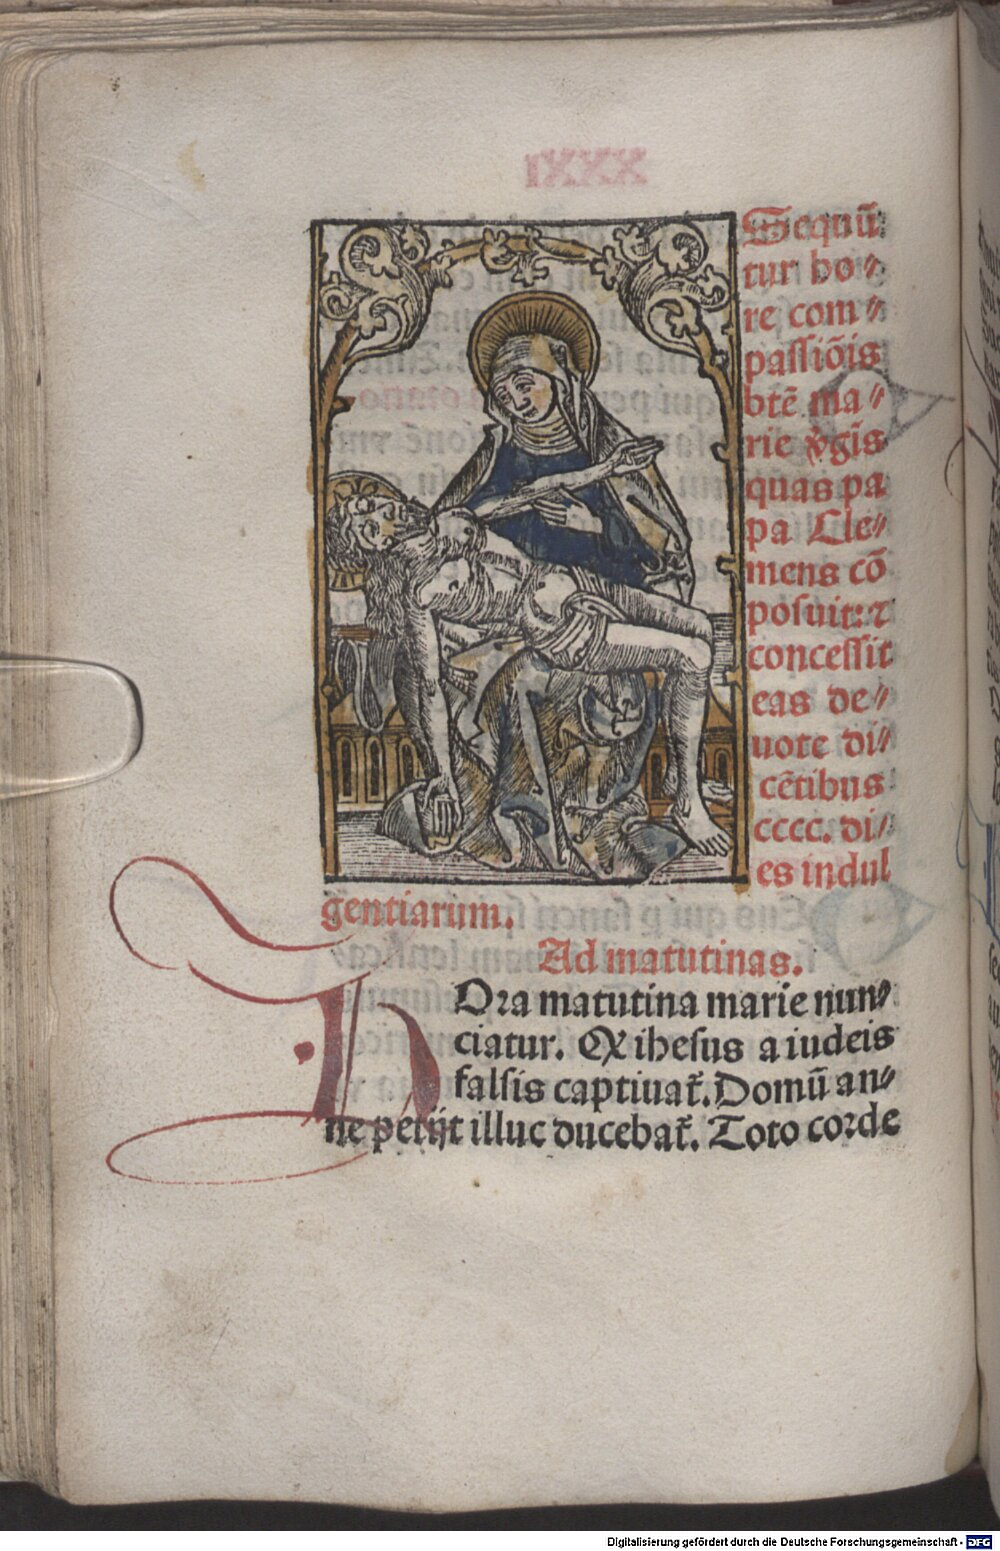 Sequū⸗
tur ho⸗
re com⸗
passiōis
btē ma⸗
rie v̔gīs
quas pa
pa Cle⸗
mens cō
posuit: ⁊
concessit
eas de⸗
uote di⸗
cētibus
cccc. di⸗
es indul
gentiarum.
Ad matutinas.
HOra matutina marie nun⸗
ciatur. Qꝛ ihesus a iudeis
falsis captiuat᷑. Domū an⸗
ne petijt illuc ducebat᷑. Toto corde
Digitalisierung gefördert durch die Deutsche Forschungsgemeinschaft - DFG